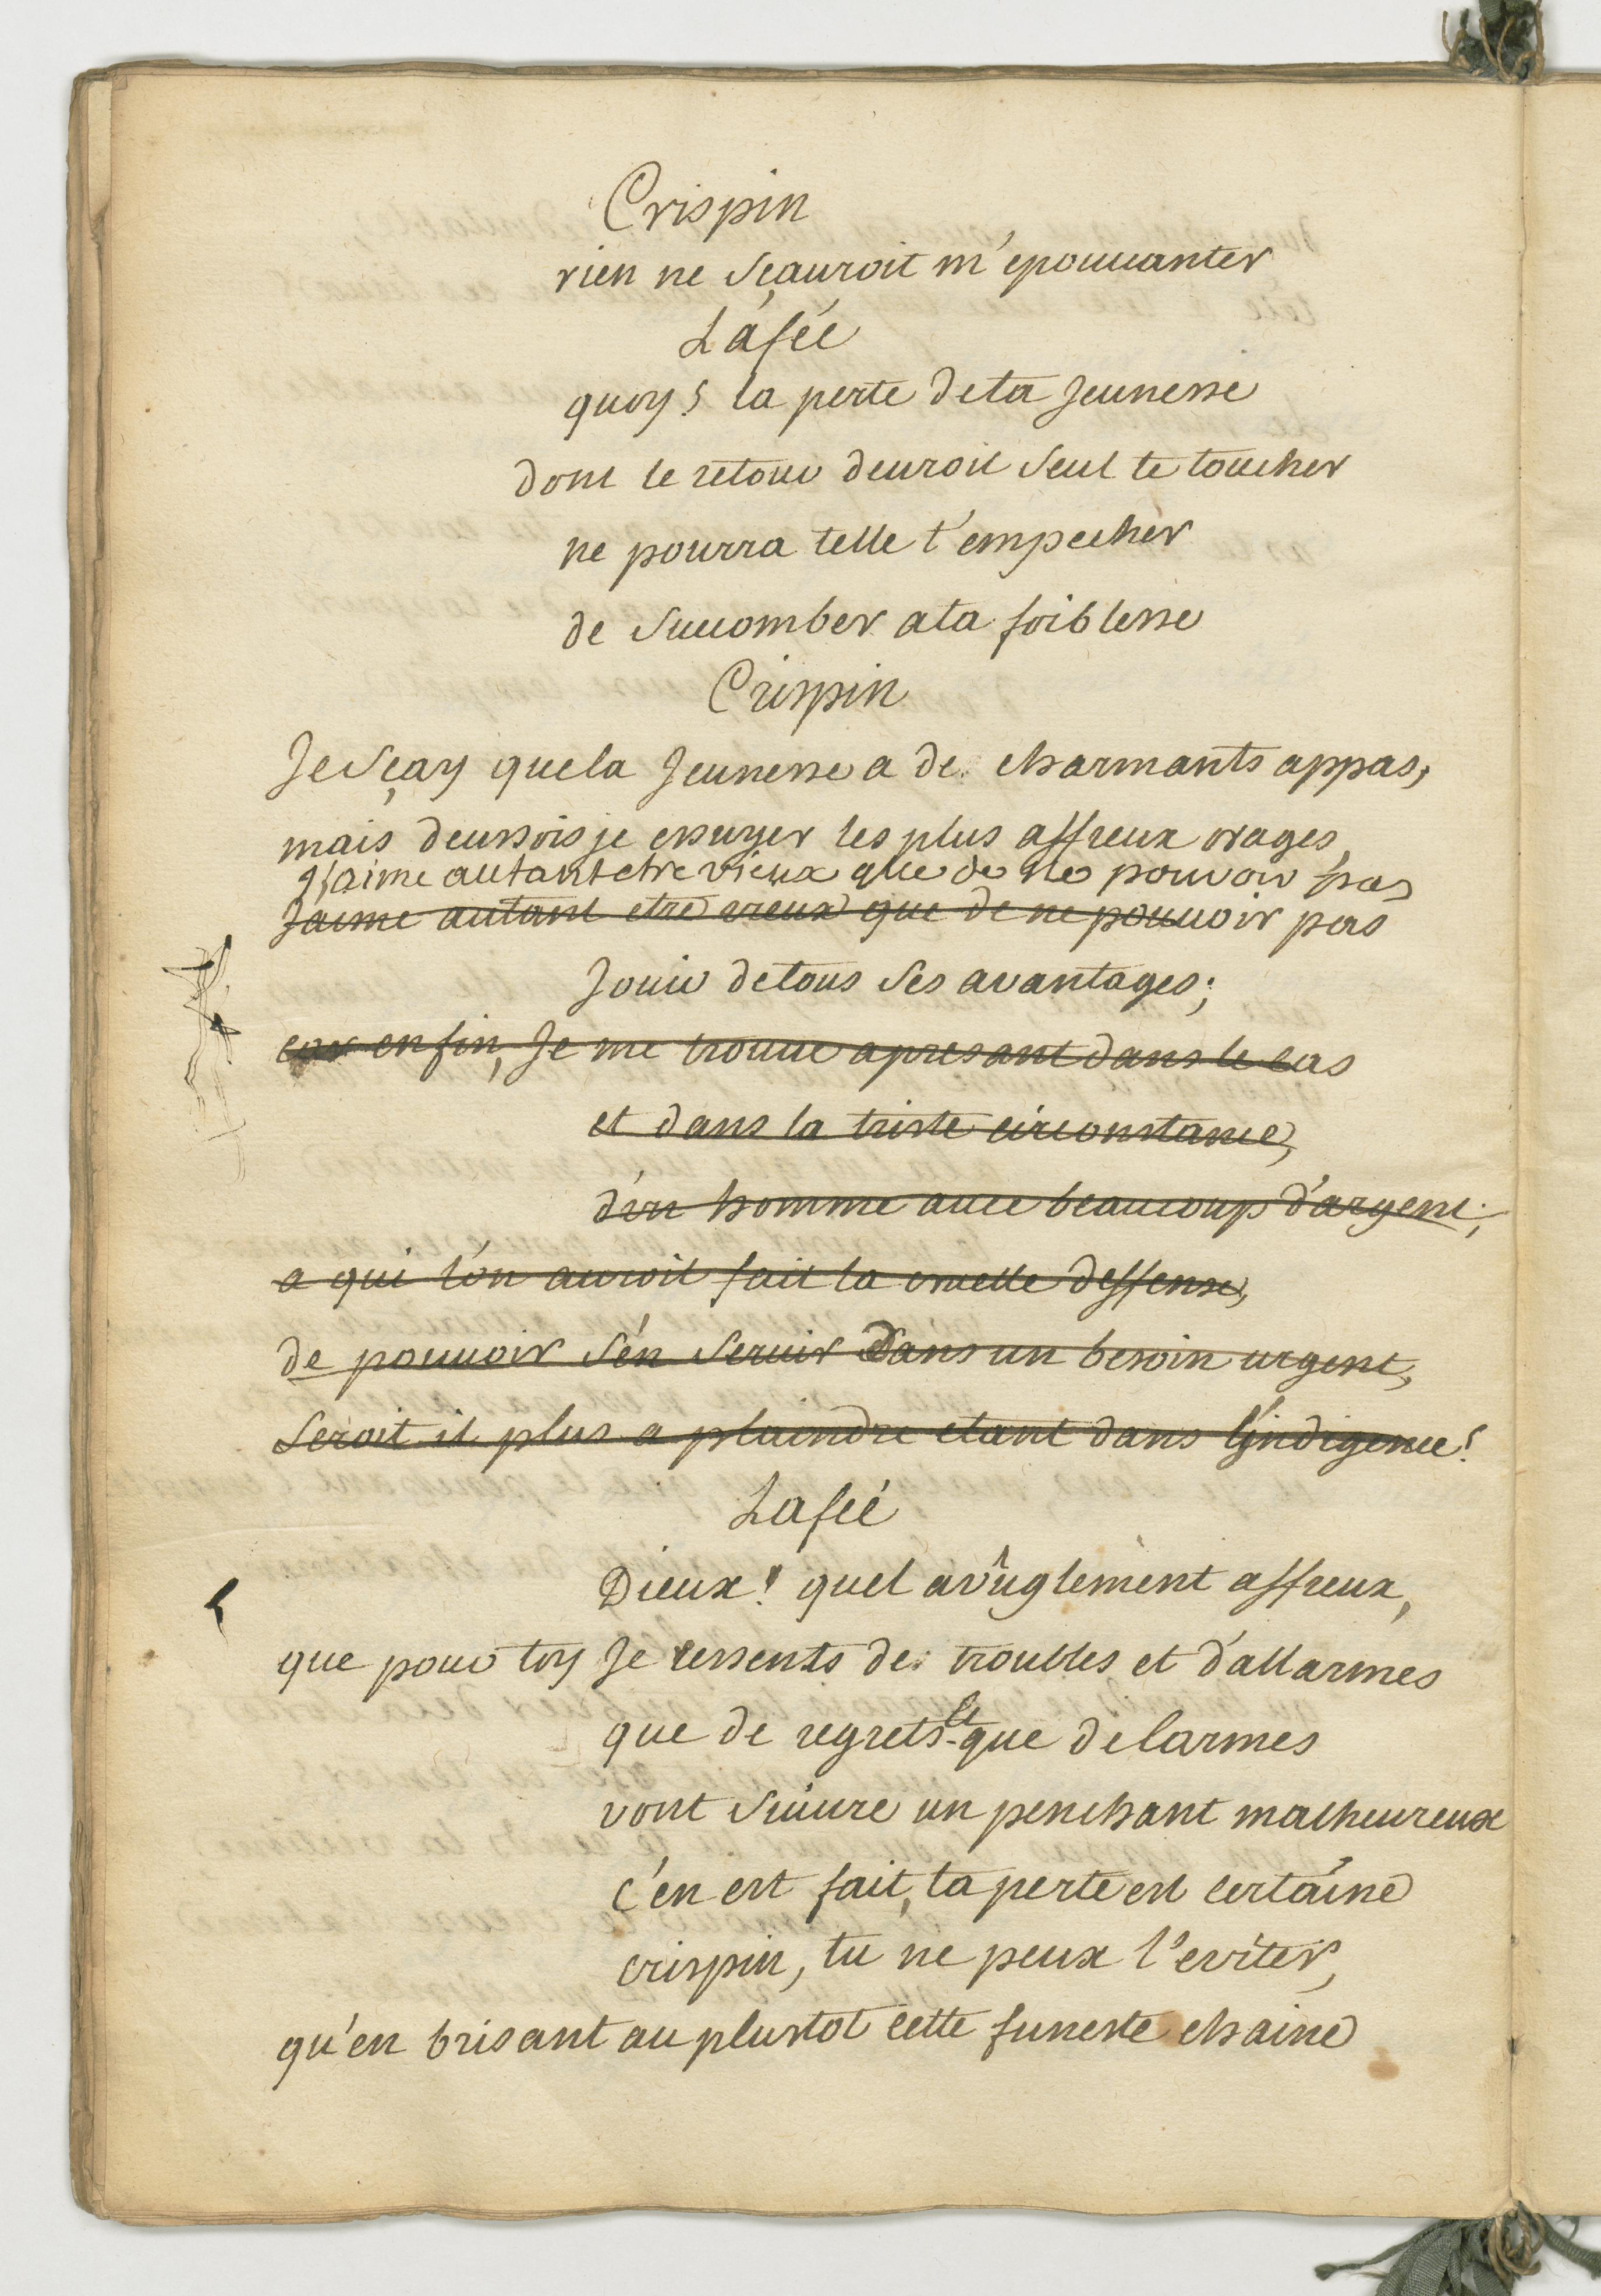 Crispin
rien ne sçauroit m'epouuanter
Lafée
quoy! la perte de ta Jeunesse
dont le retour deuroit seul te toucher
ne pourra telle t'empecher
de succomber a ta foiblesse
Crispin
Je sçay que la Jeunesse a de charmants appas,
mais deussois je essuyer les plus affreux orages,
j'aime autant etre vieux que de ne pouvoir pas
Jaime autant etre vieux que de ne pouuoir pas
Jouir de tous ses avantages;
car enfin, Je me trouue apresant dans le cas
et dans la triste circonstance,
d'un homme auec beaucoup d'argent;
a qui l'on auroit fait la cruelle deffense,
de pouuoir s'en seruir Dans un besoin urgent,
seroit il plus a plaindre etant dans l'indigence!
Lafée
Dieux! quel avûglement affreux,
que pour toy Je ressents de troubles et d'allarmes
que de regrets et que de larmes
vont suiure un penchant malheureux
c'en est fait, ta perte est certaine
crispin, tu ne peux l'eviter,
qu'en brisant au plustot cette funeste chaine